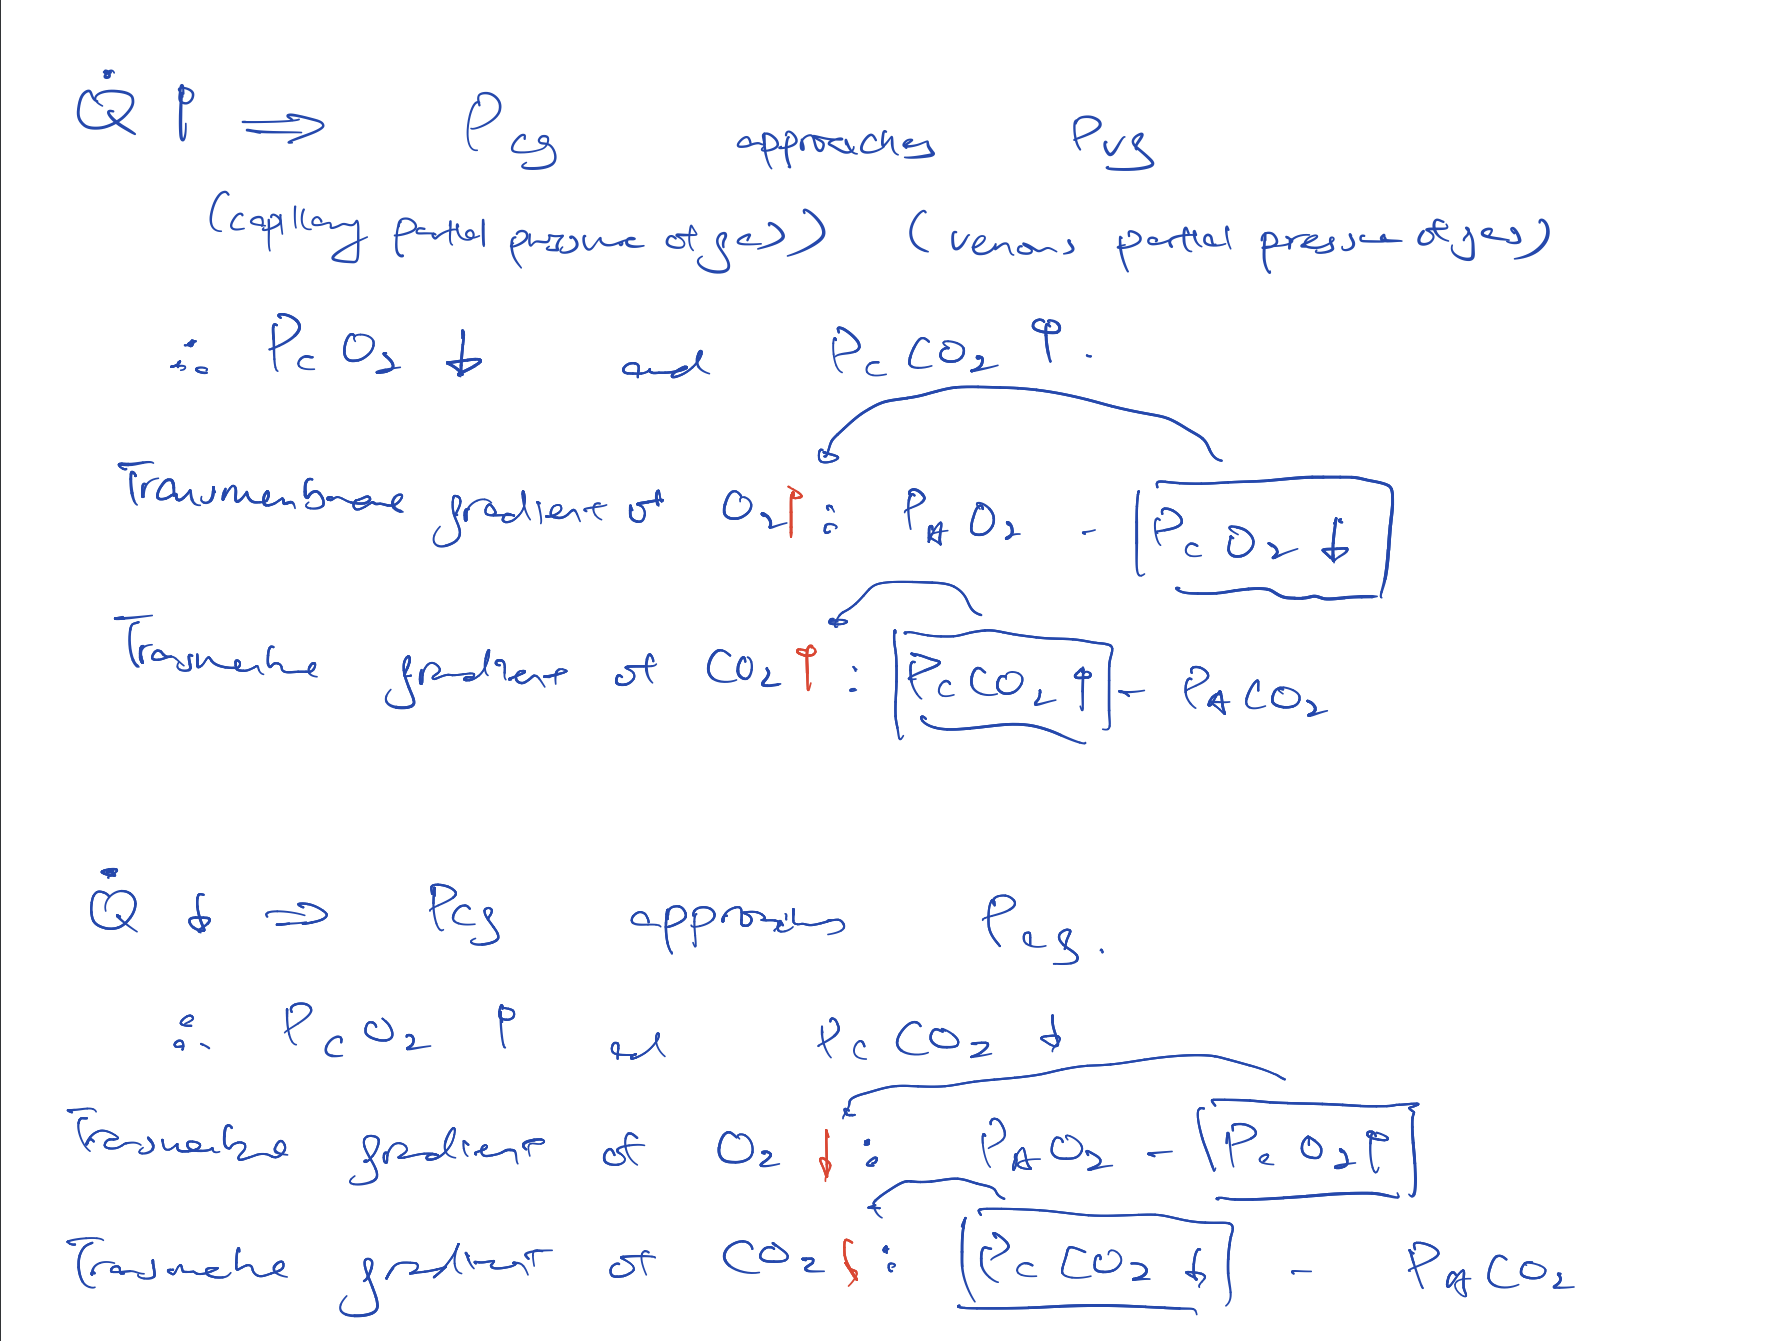 Q̇ ↑ ⇒ Pcg approaches Pvg
(capillary partial pressure of gas) (venous partial pressure of gas)
∴ PcO₂ ↓ and PcCO₂ ↑.
Transmembrane gradient of O₂↑: PAO₂ - PcO₂ ↓
Transmembrane gradient of CO₂↑: PcCO₂↑ - PACO₂
Q̇ ↓ ⇒ Pcg approaches
∴ PcO₂ ↑ and PcCO₂ ↓
Transmembrane gradient of O₂ ↓: PAO₂ - PcO₂↑
Transmembrane gradient of CO₂↓: PcCO₂ ↓ - PACO₂